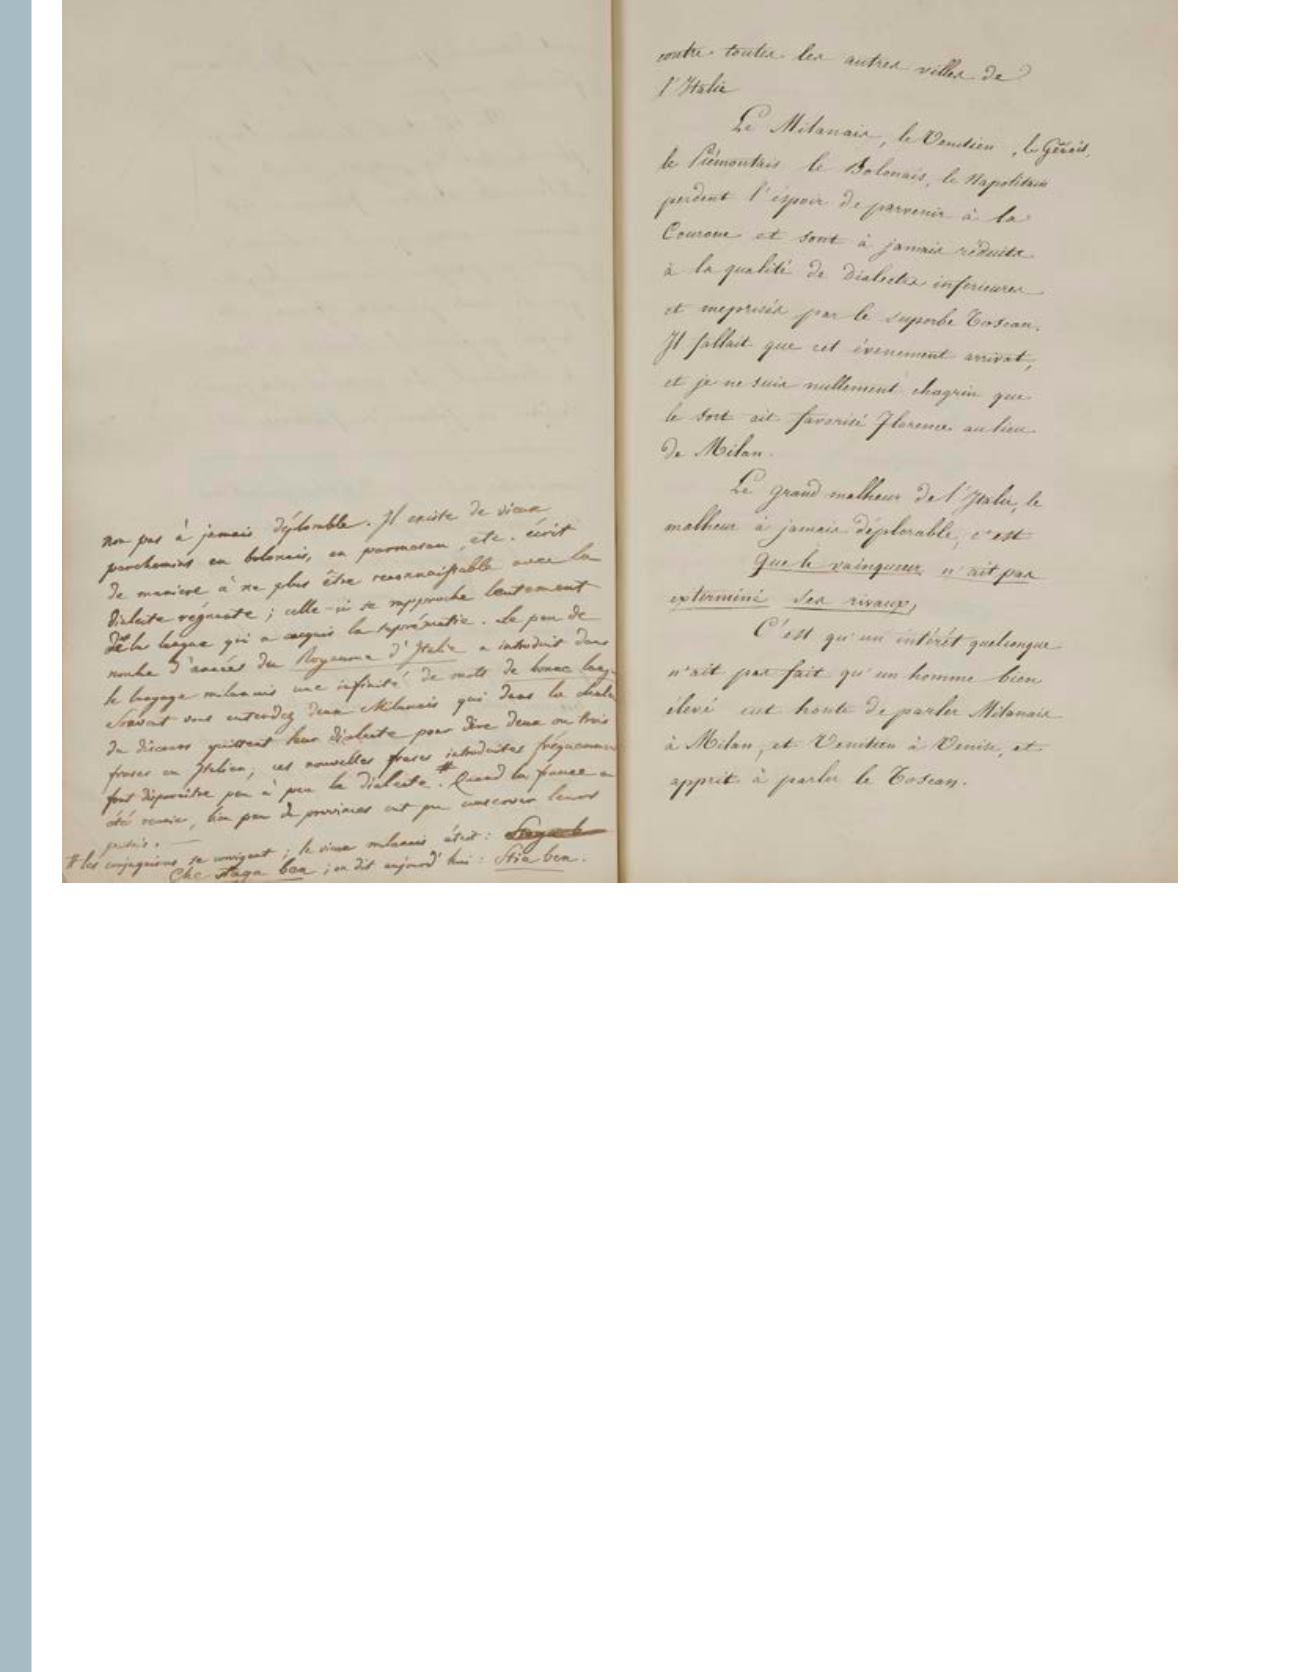 non pas à jamais déplorable. Il existe de vieux
parchemins en bolonais, en parmesan, etc. écrit
de manière à ne plus être reconnaissable avec la
dialecte régnante ; celle-ci se rapproche lentement
de la langue qui a acquis la suprématie. Le peu de
nombre d'années du Royaume d'Italie a introduit dans
le langage milanais une infinité de mots de bonne lang-
Souvent vous entendez deux Milanais qui dans la chaleur
du discours quittent leur dialecte pour dire deux ou trois
frases en Italien, ces nouvelles frases introduites fréquemment
font disparaître peu à peu la dialecte. # Quand la france a
été réunie, bien peu de provinces ont pu conserver leurs
patois. —
# les conjugaisons se corrigent ; le vieux milanais était :
Che staga ben ; on dit aujourd'hui : Stia ben.
contre toutes les autres villes de
l'Italie
Le Milanais, le Venitien, le Génois,
le Piémontais le Bolonais, le Napolitain
perdent l'éspoir de parvenir à la
Courone et sont à jamais réduits
à la qualité de dialectes inferieures
et meprisés par le superbe Toscan.
Il fallait que cet évenement arrivat,
et je ne suis nullement chagrin que
le sort ait favorisé Florence au lieu
de Milan.
Le grand malheur de l'Italie, le
malheur à jamais déplorable, c'est
Que le vainqueur n'ait pas
exterminé ses rivaux,
C'est qu'un intérêt quelconque
n'ait pas fait qu'un homme bien
élevé eut honte de parler Milanais
à Milan, et Venitien à Venise, et
apprit à parler le Toscan.